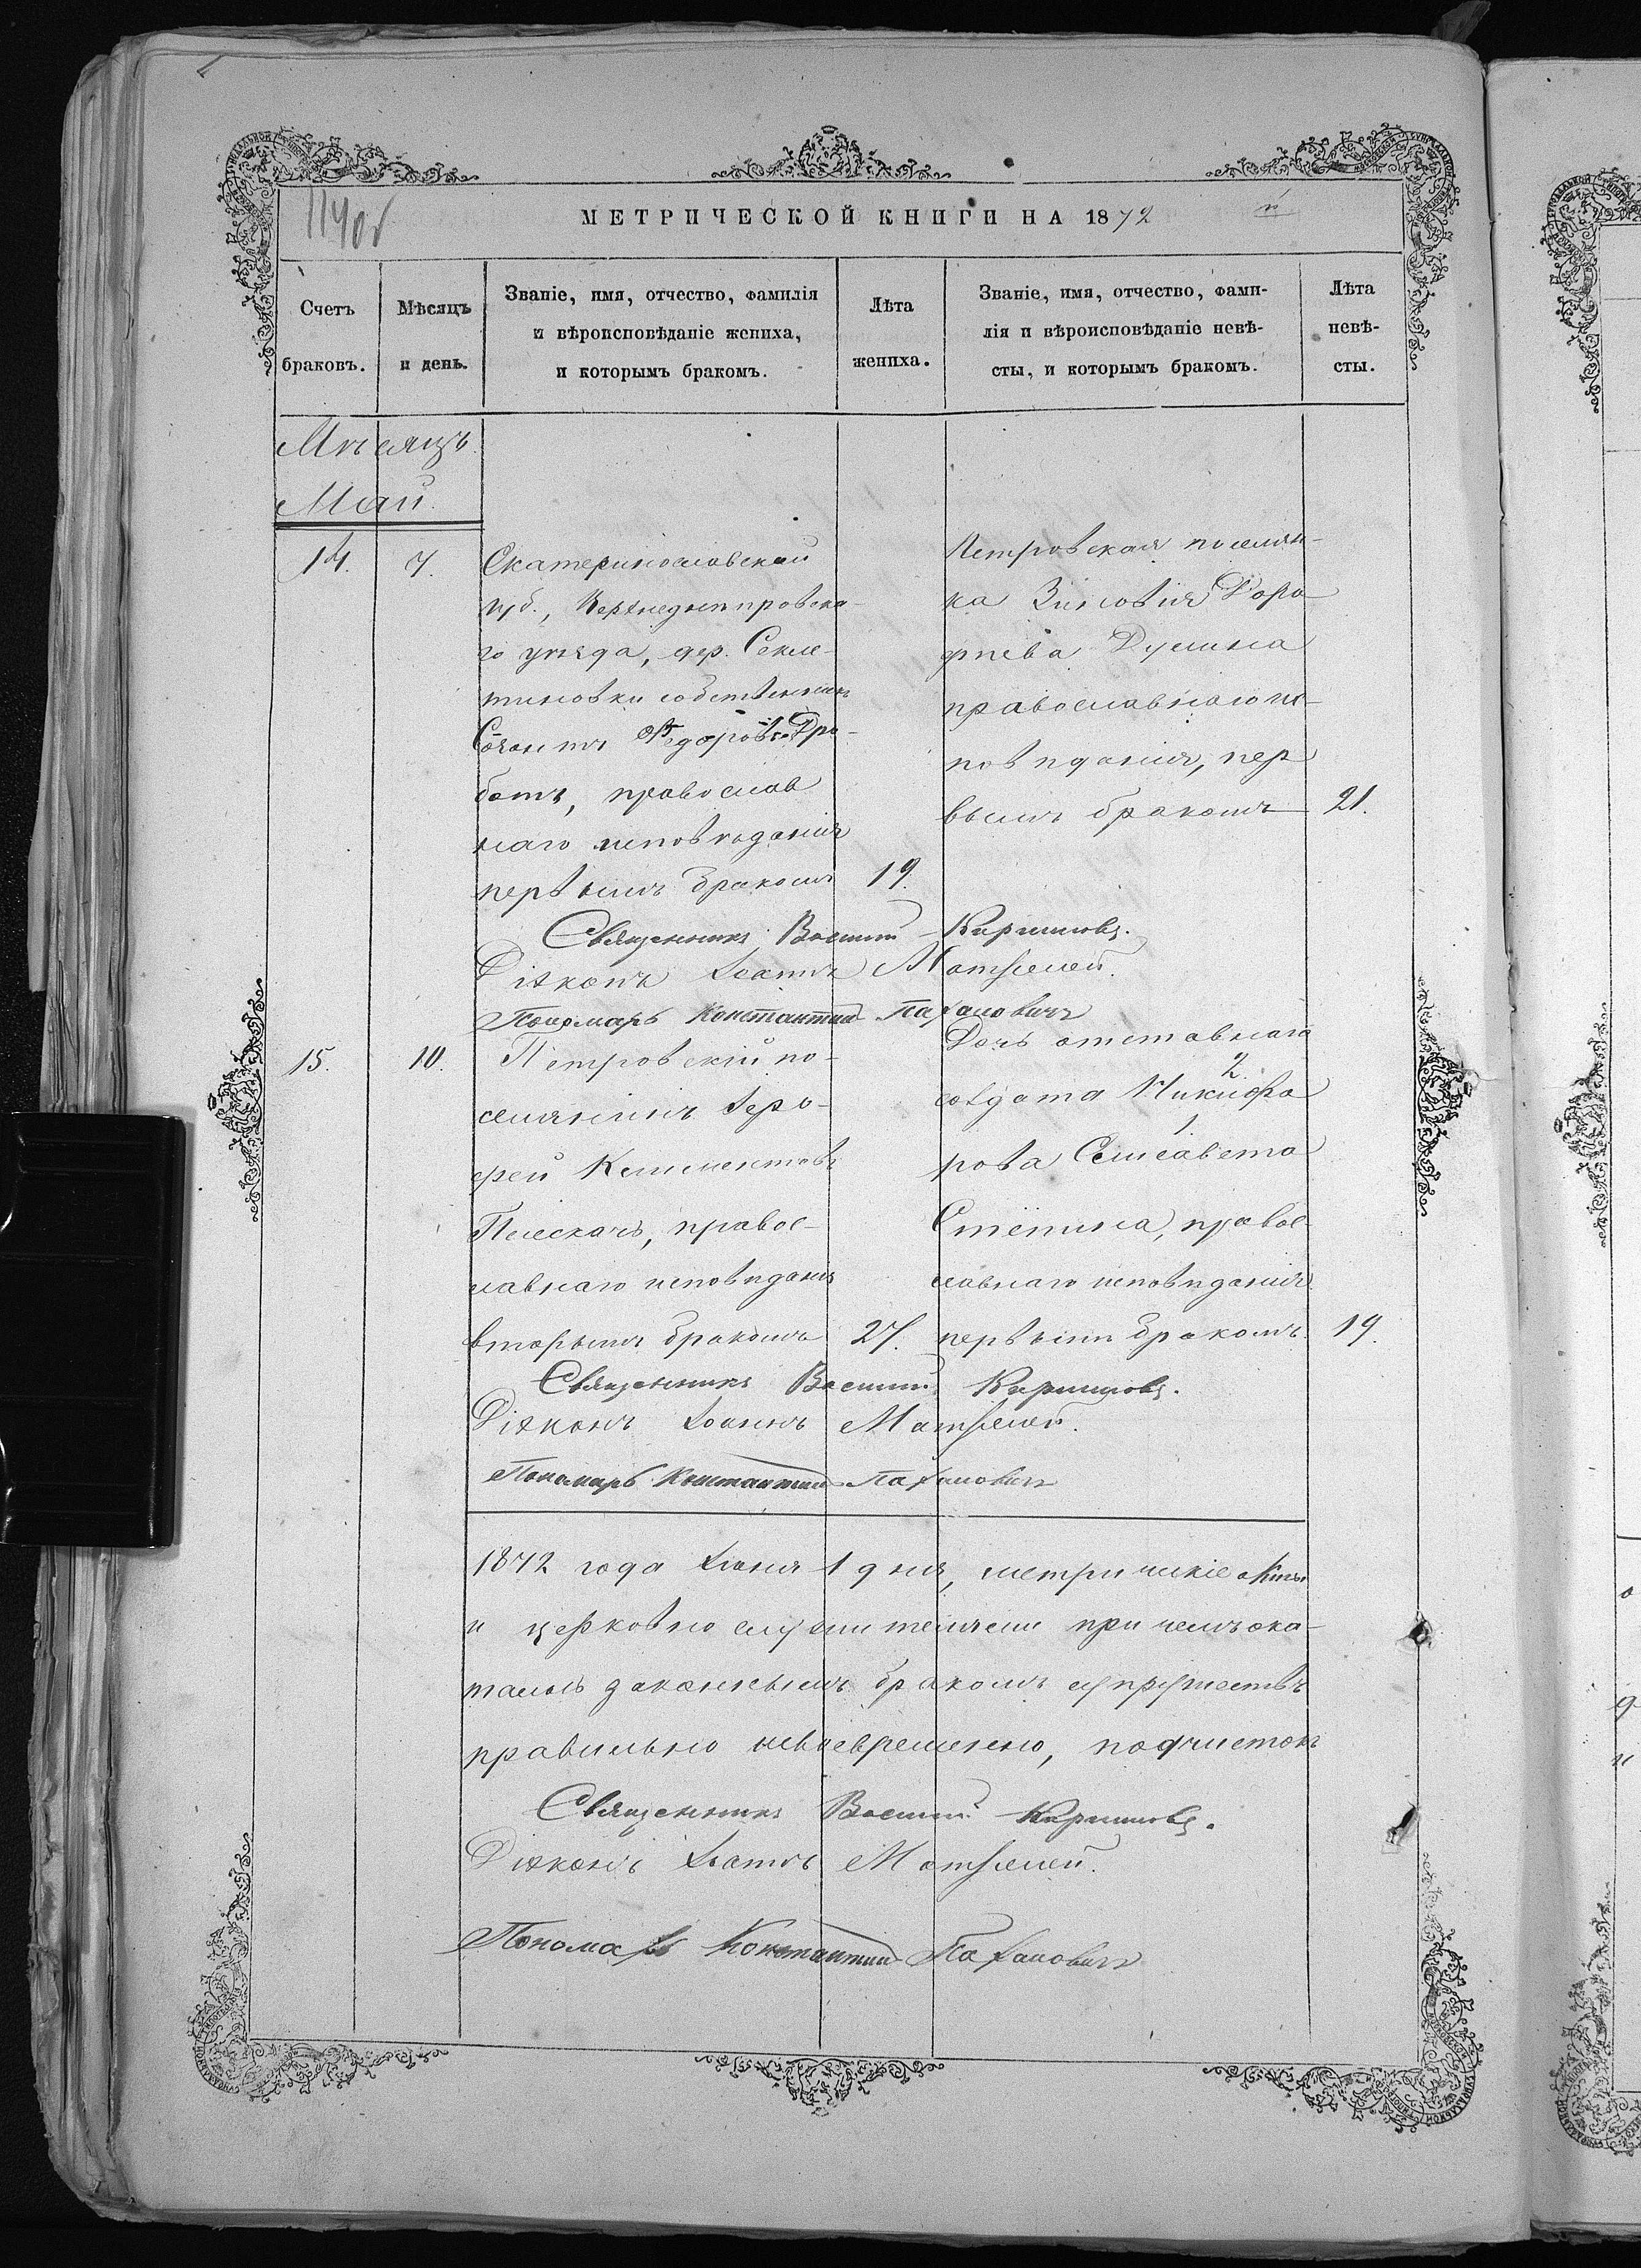 МЕТРИЧЕСКОЙ КНИГИ НА 1872
Счетъ браковъ.
Мѣсяцъ и день.
Званіе, имя, отчество, фамилія
и вѣроисповѣданіе жениха,
и которымъ бракомъ.
Лѣта жениха.
Званіе, имя, отчество, фами-
лія и вѣроисповѣданіе невѣ-
сты, и которымъ бракомъ.
Лѣта невѣ-
сты.
Мѣсяцъ
Май.
14. 7.
Екатеринославской
губ., Верхнеднѣпровска-
го уѣзда, дер.
собственникъ
Федоровъ Дро-
ботъ, православ
наго исповѣданія
первымъ бракомъ 19.
Петровская поселян-
ка Зиновія Доро
фѣева
православнаго ис-
повѣданія, пер
вымъ бракомъ 21.
Священникъ Василій Кириловъ.
Діяконъ Іоаннъ
Пономарь Константинъ
15. 10.
Петровскій по-
селянинъ Іеро-
фей Климентовъ
Плескачъ, правос-
лавнаго исповѣданія
вторымъ бракомъ 27.
Дочь отставнаго
солдата Никифо 2
рова Елисавета 1
Степина, правос-
лавнаго исповѣданія
первымъ бракомъ. 19.
Священникъ Василій Кириловъ.
Діяконъ Іоаннъ
Пономарь Константинъ
1872 года Іюня 1 дня, метрическіе
и церковнослужителями при чемъ ока-
законнымъ бракомъ супружествъ
правильно своевременно,
Священникъ Василій Кириловъ.
Діяконъ Іоаннъ
Пономарь Константинъ